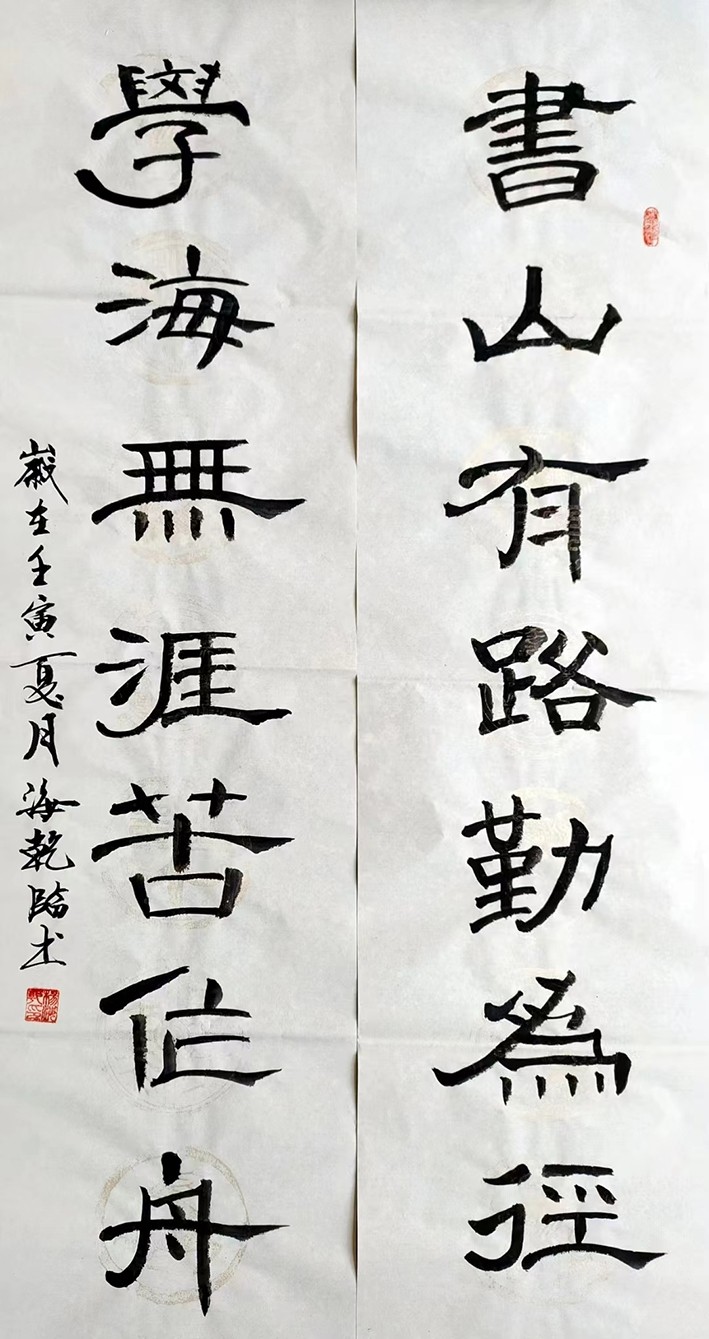 書山有路勤為徑
學海無涯苦作舟
嵗在壬寅夏月海乾临书